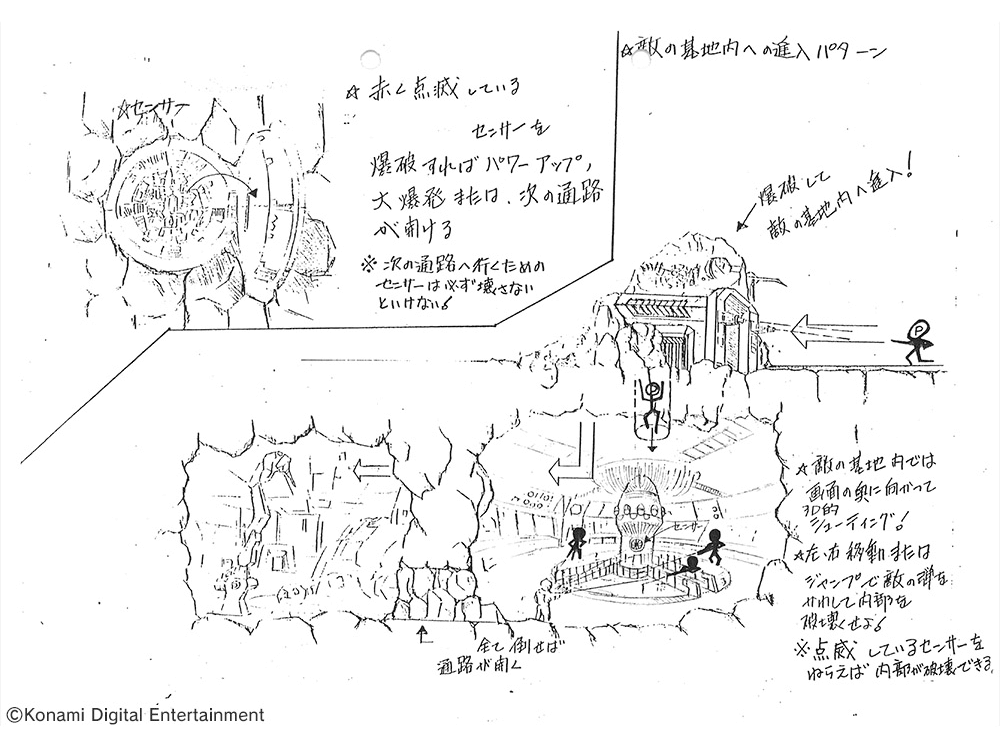 ☆敵の基地内への進入パターン
☆センサー
☆赤く点滅している
センサーを
爆破すればパワーアップ,
大爆発または、次の通路
が開ける
※次の通路へ行くための
センサーは必ず壊さない
といけない!
爆破して
敵の基地内へ進入!
P
P
センサー
☆敵の基地内では
画面の奥に向かって
3D的
シューティング!
☆左・右移動または
ジャンプで敵の弾を
かわして内部を
破壊せよ!
※点滅しているセンサーを
ねらえば内部が破壊できる。
全て倒せば
通路が開く
©Konami Digital Entertainment